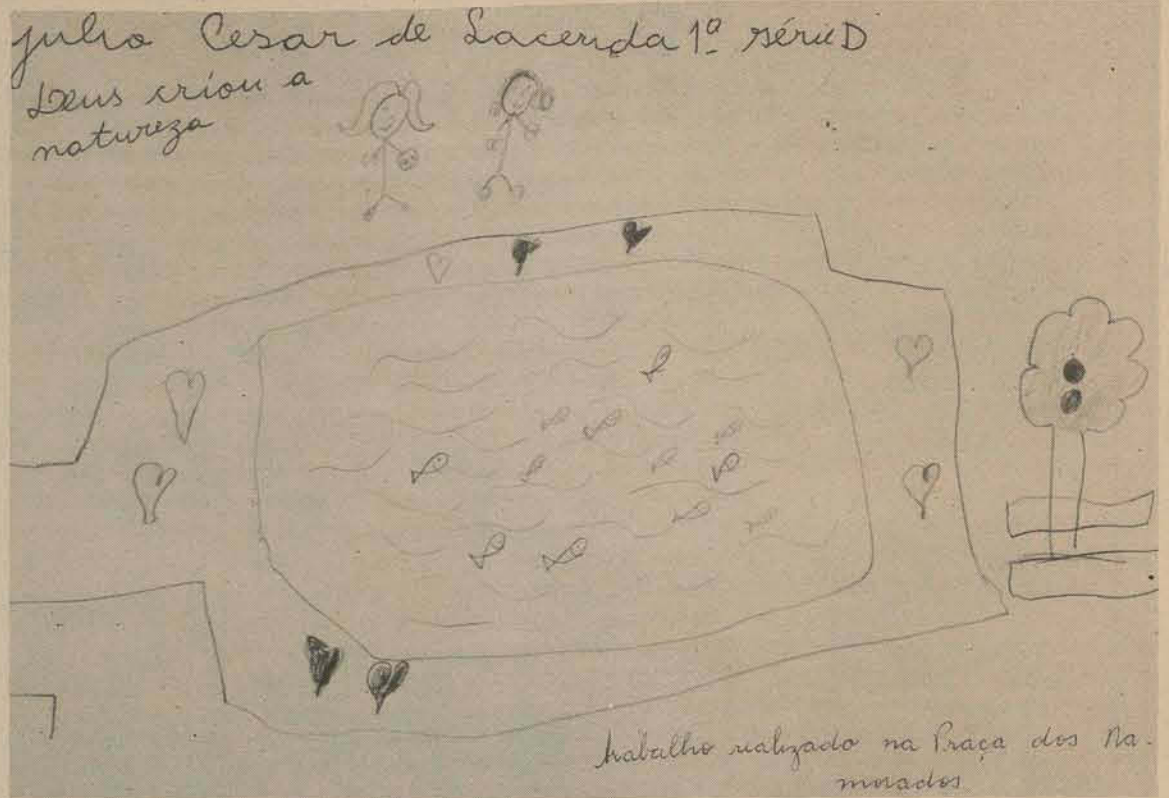 Julio Cesar de Lacerda 1ª série D
Deus criou a
natureza
trabalho realizado na Praça dos Na-
morados